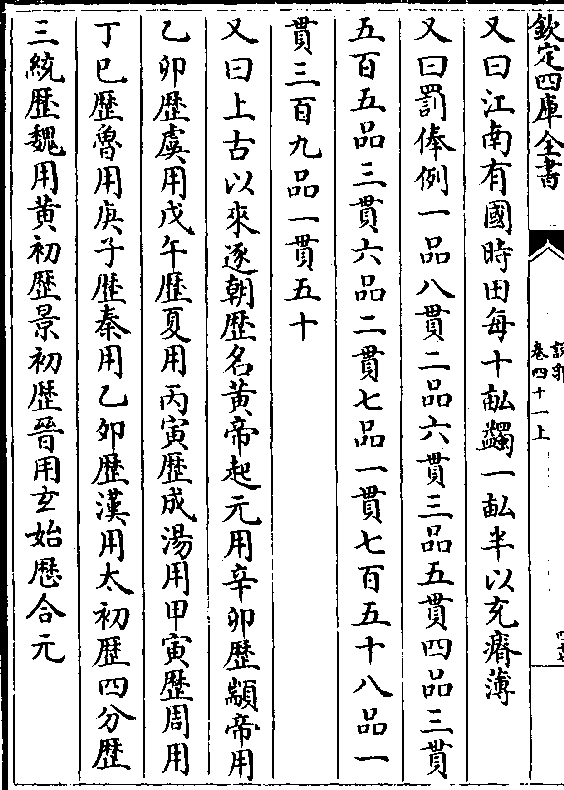 欽定四庫全書
卷四十一上
又曰江南有國時田每十畝蠲一畝半以充瘠薄
又曰罰俸例一品八貫二品六貫三品五貫四品三貫
五百五品三貫六品二貫七品一貫七百五十八品一
貫三百九品一貫五十
又曰上古以來逐朝歴名黄帝起元用辛卯歴顓帝用
乙卯歴虞用戊午歴夏用丙寅歴成湯用甲寅歴周用
丁巳歴魯用庚子歴秦用乙卯歴漢用太初歴四分歴
三統歴魏用黄初歴景初歴晉用𤣥始歴合元